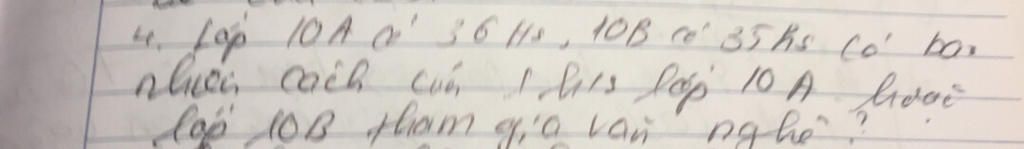 4. Lớp 10A có 36 Hs, 10B có 35 hs có bao
nhiêu cách cử 1 hs lớp 10A hoặc
lớp 10B tham gia văn nghệ?